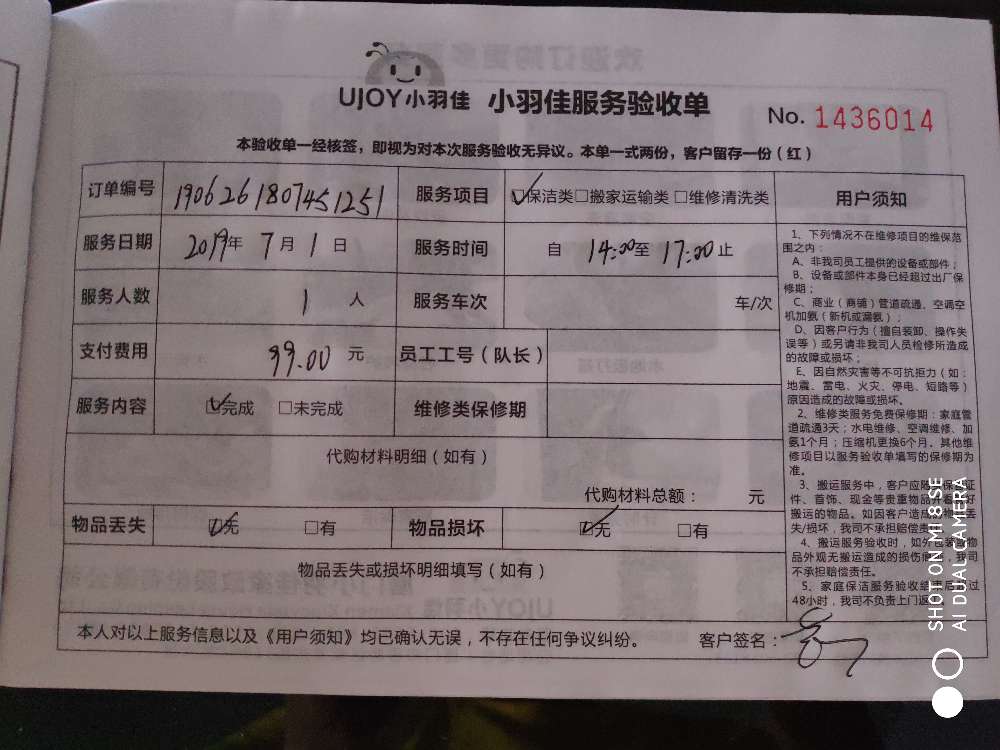 UJOY小羽佳 小羽佳服务验收单
No. 1436014
本验收单一经核签，即视为对本次服务验收无异议。本单一式两份，客户留存一份（红）
订单编号 1906261807451251 服务项目 ☑保洁类□搬家运输类 □维修清洗类
服务日期 2019年 7月 1日 服务时间 自 14:00至 17:00止
服务人数 1 人 服务车次 车/次
支付费用 99.00 元 员工工号（队长）
服务内容 ☑完成 □未完成 维修类保修期
代购材料明细（如有）
代购材料总额： 元
物品丢失 ☑无 □有 物品损坏 ☑无 □有
物品丢失或损坏明细填写（如有）
本人对以上服务信息以及《用户须知》均已确认无误，不存在任何争议纠纷。 客户签名：
用户须知
1、下列情况不在维修项目的维保范
围之内：
A、非我司员工提供的设备或部件；
B、设备或部件本身已经超过出厂保
修期；
C、商业（商铺）管道疏通、空调空
机加氨（新机或漏氨）；
D、因客户行为（擅自装卸、操作失
误等）或另请非我司人员检修所造成
的故障或损坏；
E、因自然灾害等不可抗拒力（如：
地震、雷电、火灾、停电、短路等）
原因造成的故障或损坏。
2、维修类服务免费保修期：家庭管
道疏通3天；水电维修、空调维修、加
氨1个月；压缩机更换6个月。其他维
修项目以服务验收单填写的保修期为
准。
3、搬运服务中，客户应随 保 证
件、首饰、现金等贵重物品并 好
搬运的物品。如因客户造成 物 丢
失/损坏，我司不承担赔偿责
4、搬运服务验收时，如外包装 物
品外观无搬运造成的损伤 ，我司
不承担赔偿责任。
5、家庭保洁服务验收结束后 过
48小时，我司不负责上门返
SHOT ON MI 8 SE
AI DUAL CAMERA